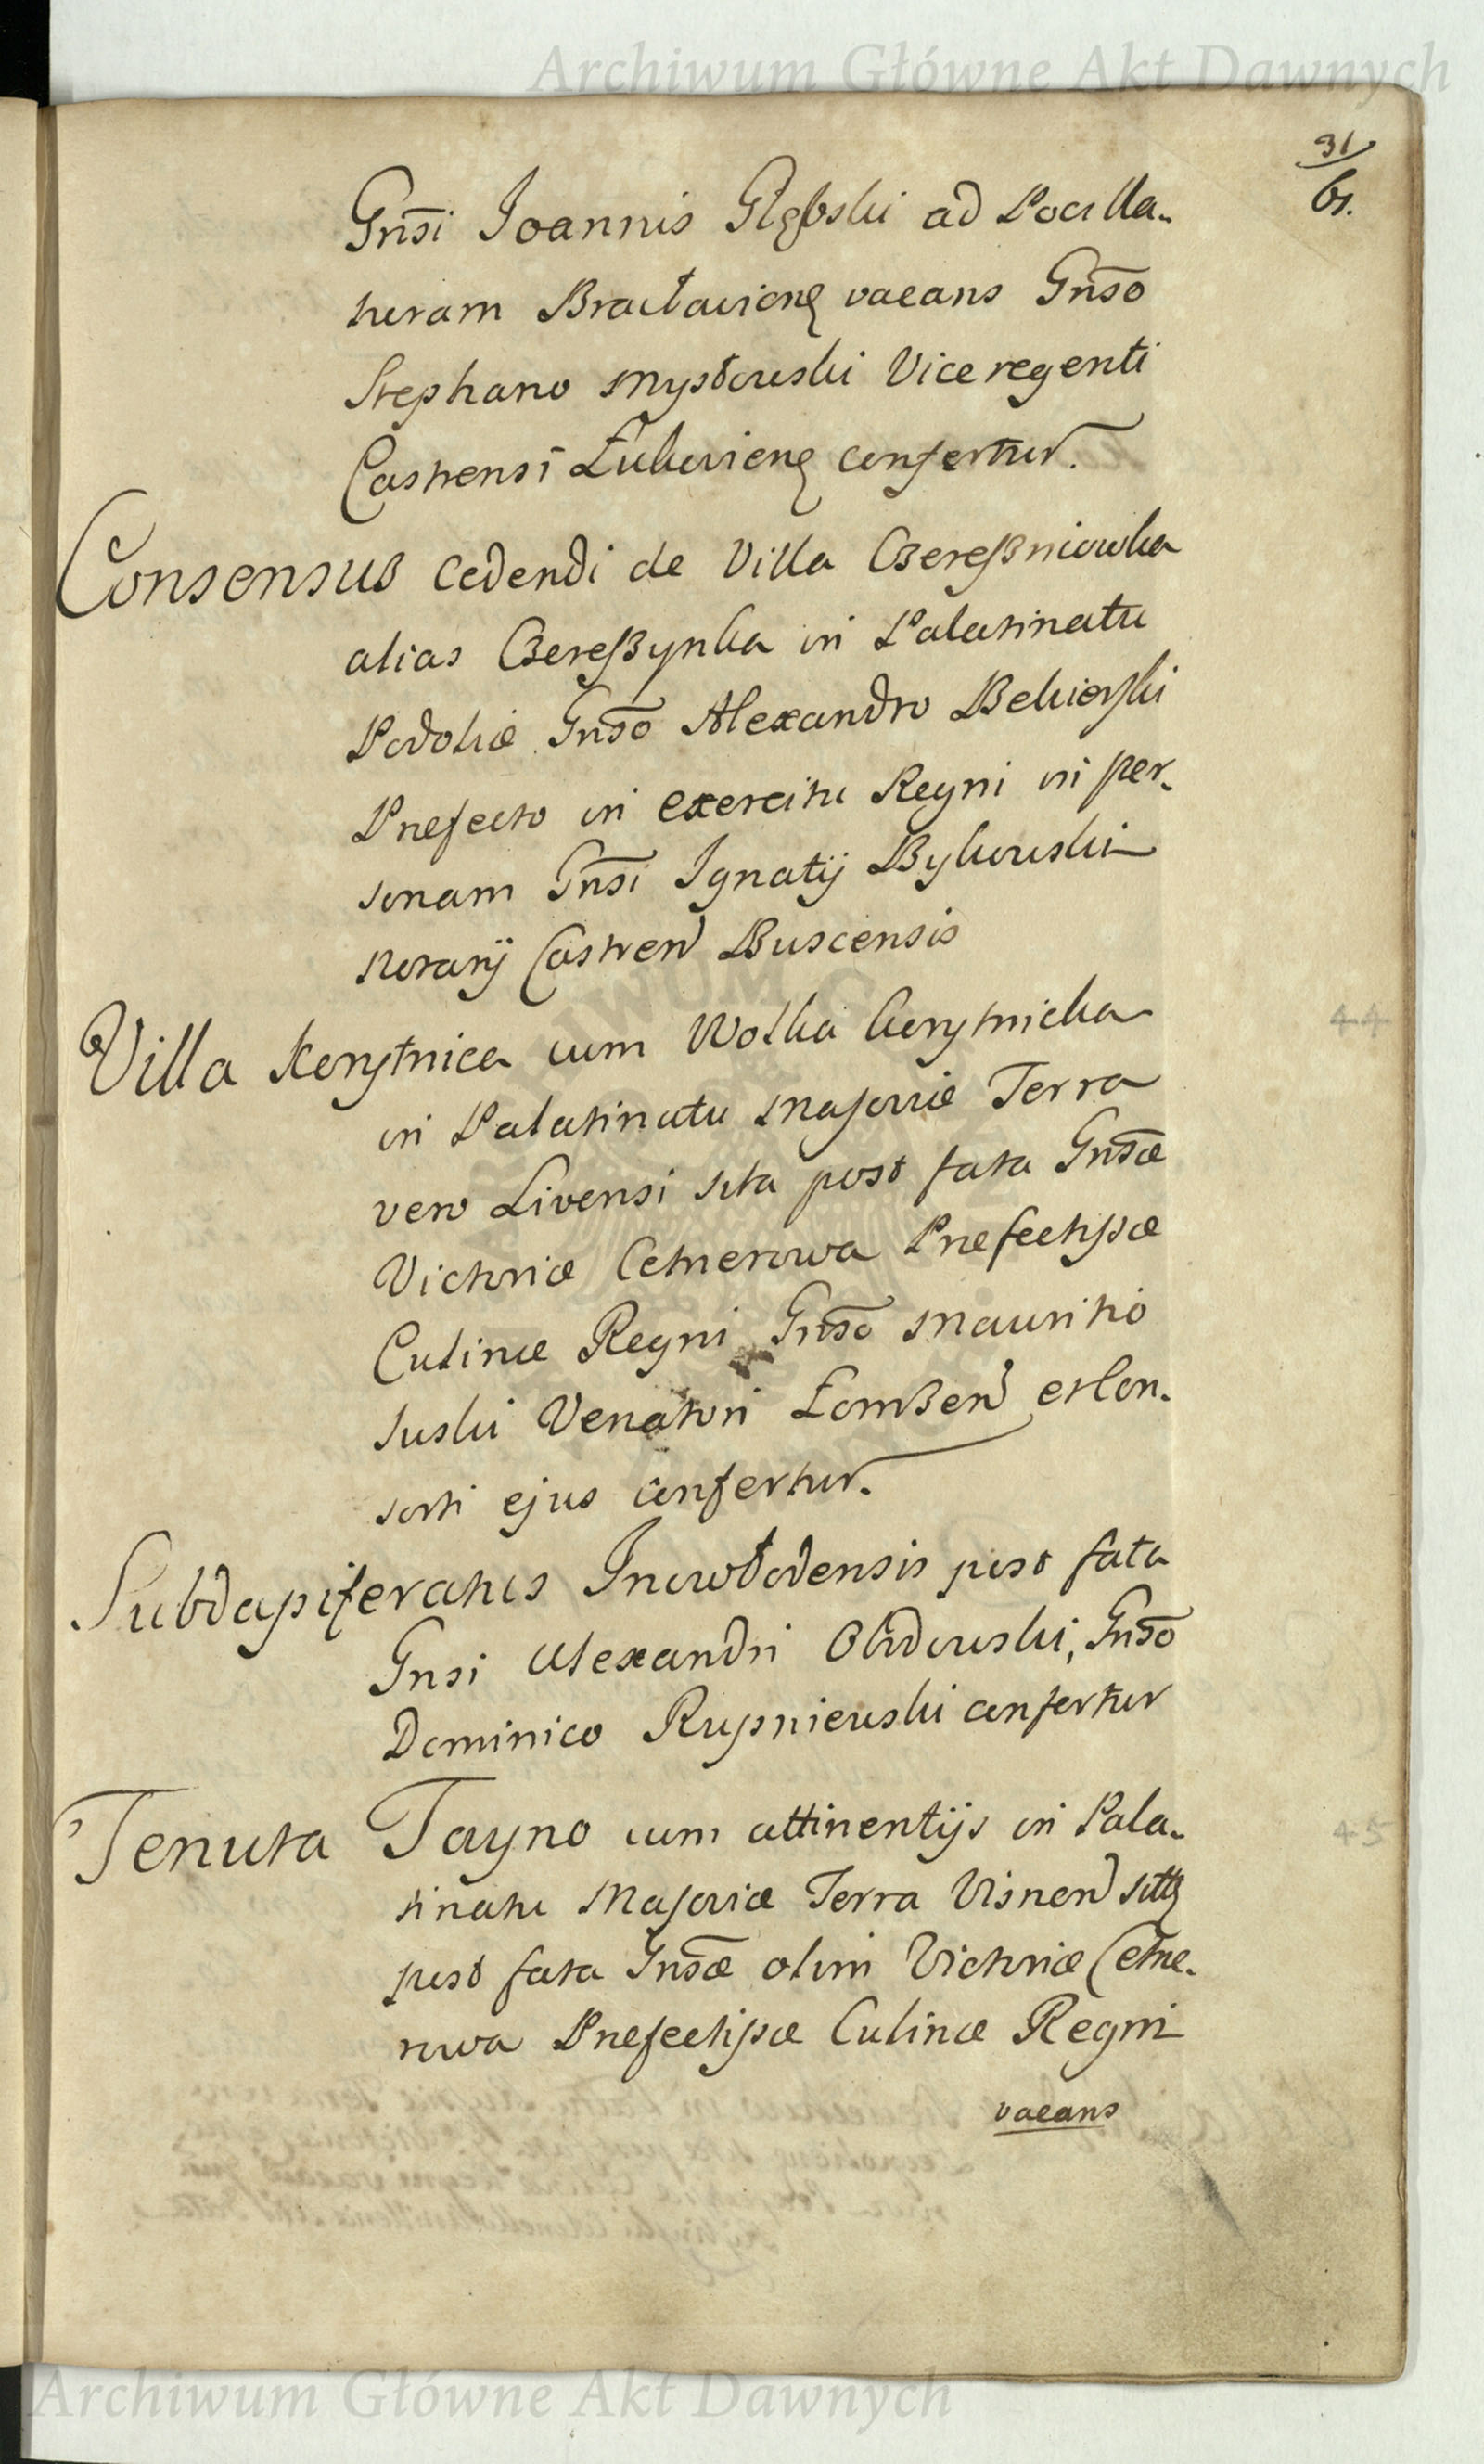 Archiwum Główne Akt Dawnych
31
61.
Gnsi Joannis Głębski ad Pocilla-
turam Bracłavienę vacans Gnso
Stephano Mysłowski Vice regenti
Castrensi Łukovienę confertur.
Consensus cedendi de Villa Czereszniowka
alias Czereszynka in Palatinatu
Podoliæ Gnso Alexandro Bekierski
Præfecto in exercitu Regni in per-
sonam Gnsi Ignatij Bykowski
Notarij Castren Buscensis
Villa Korytnica cum Wolka korytnicka
44
in Palatinatu Masoviæ Terra
vero Livensi sita post fata Gnsæ
Victoriæ Cetnerowa Præfectissæ
Culinæ Regni Gnso Mauritio
suski Venatori Łomzen et Con-
sorti ejus confertur.
Subdapiferatus Inowłodensis post fata
Gnsi Alexandri Gnso
Dominico Rupniewski confertur
Tenuta Tayno cum attinentijs in Pala-
45
tinatu Masoviæ Terra Visnen sita
post fata Gnsæ olim Victoriæ Cetne-
rowa Præfectissæ Culinæ Regni
vacans
Archiwum Główne Akt Dawnych